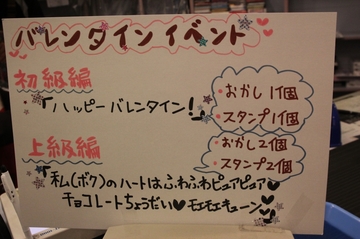 バレンタインイベント
初級編
・おかし1個
・スタンプ1個
・「ハッピーバレンタイン!」
上級編
・おかし2個
・スタンプ2個
・「私(ボク)のハートはふわふわピュアピュア♥
チョコレートちょうだい♥モエモエキューン♡」